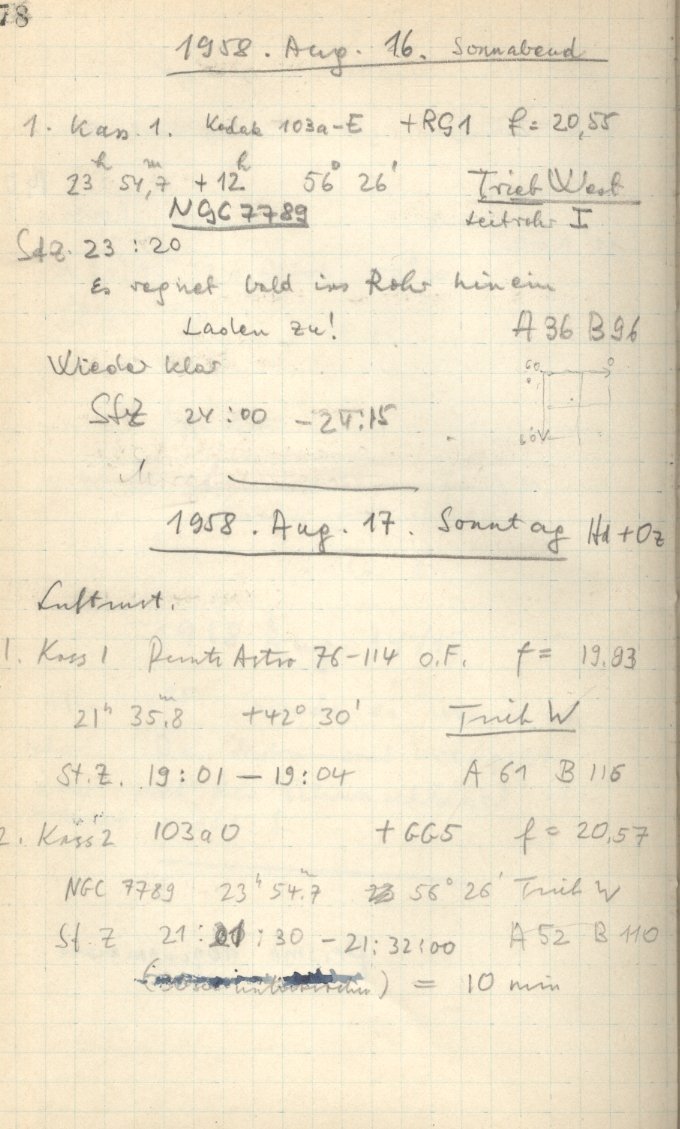 78
1958. Aug. 16. Sonnabend
1. Kass. 1. Kodak 103a-E +RG1 f = 20,55
23h 54,7m +12h 56° 26' Trieb West
NGC 7789 Leitrohr I
Stz. 23:20
Es regnet bald ins Rohr hinein
Laden zu! A 36 B 96
Wieder klar
StZ 24:00 - 24:15
1958. Aug. 17. Sonntag Hd + Oz
1. Kass 1 Astro 76-114 O.F. f = 19.93
21h 35.8m +42° 30' Trieb W
St.Z. 19:01 — 19:04 A 61 B 116
2. Kass 2 103a0 + GG5 f = 20,57
NGC 7789 23h 54.7m 56° 26' Trieb W
St. Z 21: :30 - 21:32:00 A 52 B 110
= 10 min